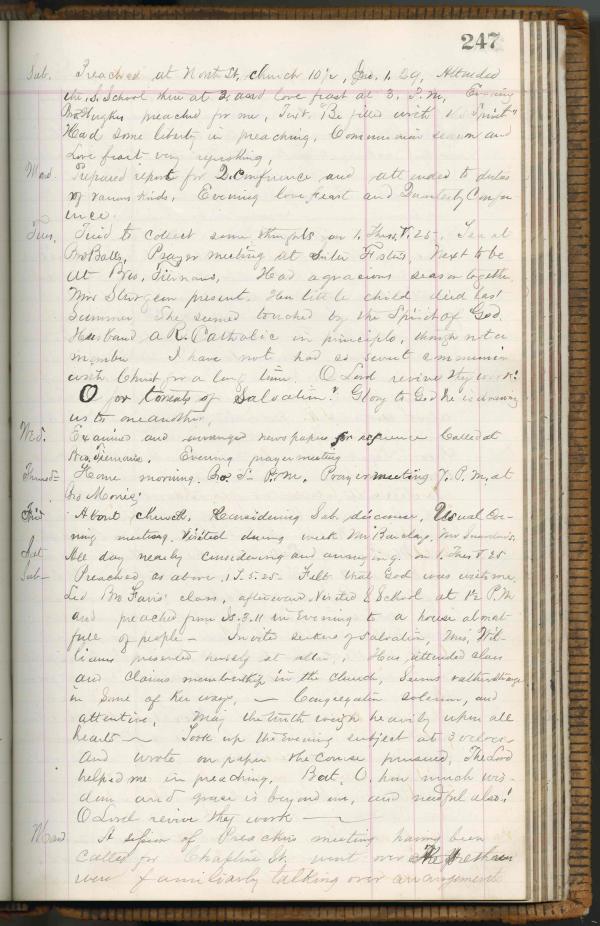 247
Sab. Preached at North St. church 10½, Jno. 1. 29, Attended
the S. School there at 2, and love feast at 3. P.M. Evening
Bro Hughes preached for me, Text "Be filled with the Spirit"
Had some liberty in preaching. Communion season and
Love feast very refreshing.
Mond. Prepared report for Q. Conference and attended to duties
of various kinds. Evening love feast and Quarterly Confer
ence.
Tues. Tried to collect some thoughts on 1. Thes. V. 25. Tea at
Bro Balls, Prayer meeting at Sister Next to be
at Bro. Had a gracious season together
Mrs Sturgeon present. Her little child died last
Summer. She seemed touched by the Spirit of God.
Husband a R. Catholic in principle, though not a
member I have not had so sweet communion
with Christ for a long time. O Lord revive thy work!
O for torents of Salvation! Glory to God he is drawing
us to one another,
Wed. Examined and arranged newspapers for reference Called at
Bro. Evening prayer meeting
Thursd= Home morning. P.M. Prayer meeting 7. P.M. at
Bro
Frid About church. Considering Sab. discourse. Usual Eve-
ning meeting. Visited during week Mrs Barclay, Mrs
Sat All day nearly considering and arranging on 1. Thes V 25
Sab— Preached as above, 1 T. 5. 25— Felt that God was with me,
Led Bro class, afterward Visited S School at 1½ P.M
and preached from Is. 3. 11 in Evening to a house almost
full of people — Invited seekers of salvation, Miss Wil-
liams presented herself at altar. Has attended class
and claims membership in the church, Seems rather strange
in some of her ways, — Congregation solemn, and
attentive. May the truth weigh heavily upon all
hearts — Took up the Evening subject at 3 oclock
and wrote on paper the course pursued, The Lord
helped me in preaching. But, O. how much wis-
dom and grace is beyond me, and needful also!
O Lord revive thy work —
Mond A session of Preachers meeting having been
called for Chapline St. went over The brethren
were familiarly talking over arrangements